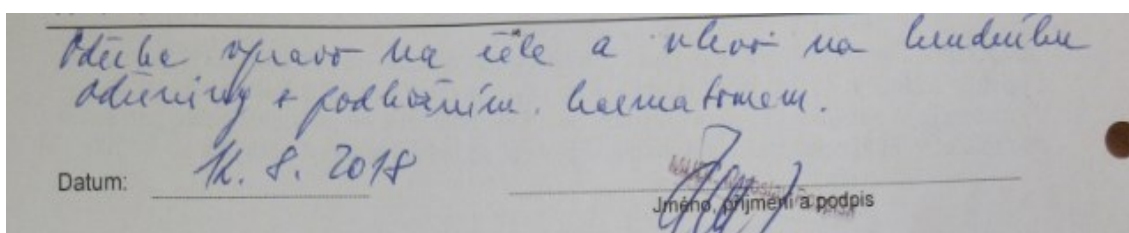 vpravo na čele a vlevo na hrudníku
oděniny s podkožním haematomem.
Datum: 12. 8. 2018
Jméno, příjmení a podpis